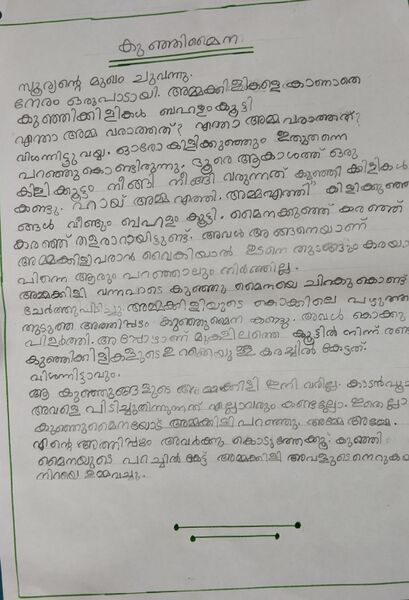 കുഞ്ഞിമൈന
സൂര്യന്റെ മുഖം ചുവന്നു.
നേരം ഒരുപാടായി. അമ്മക്കിളികളെ കാണാതെ
കുഞ്ഞിക്കിളികൾ ബഹളം കൂട്ടി
എന്താ അമ്മ വരാത്തത്? എന്താ അമ്മ വരാത്തത്?
വിശന്നിട്ടു വയ്യ. ഓരോ കിളിക്കുഞ്ഞും ഇതുതന്നെ
പറഞ്ഞു കൊണ്ടിരുന്നു. ദൂരെ ആകാശത്ത് ഒരു
കിളിക്കൂട്ടം നീങ്ങി നീങ്ങി വരുന്നത് കുഞ്ഞിക്കിളികൾ
കണ്ടു. ഹായ് അമ്മ എത്തി. അമ്മഎത്തി" കിളിക്കുഞ്ഞു
ങ്ങൾ വീണ്ടും ബഹളം കൂട്ടി. മൈനക്കുഞ്ഞ് കരഞ്ഞ്
കരഞ്ഞ് തളരാറായിട്ടുണ്ട്. അവൾ അങ്ങനെയാണ്
അമ്മക്കിളിവരാൻ വൈകിയാൽ ഉടനെ തുടങ്ങും കരയാ
പിന്നെ ആരും പറഞ്ഞാലും നിർത്തില്ല.
അമ്മക്കിളി വന്നപാടെ കുഞ്ഞു മൈനയെ ചിറകു കൊണ്ട്
ചേർത്തുപിടിച്ചു. അമ്മക്കിളിയുടെ കൊക്കിലെ പഴുത്ത
തുടുത്ത അത്തിപ്പഴം കുഞ്ഞുമൈന കണ്ടു. അവൾ കൊക്കു
പിളർത്തി. അപ്പോഴാണ് മുകളിലത്തെ കൂട്ടിൽ നിന്ന് രണ്ട
കുഞ്ഞിക്കിളികളുടെ കരച്ചിൽ കേട്ടത്.
വിശന്നിട്ടാവും.
ആ കുഞ്ഞുങ്ങളുടെ അമ്മക്കിളി ഇനി വരില്ല. കാടൻപൂച
അവളെ പിടിച്ചുതിന്നുന്നത് എല്ലാവരും കണ്ടല്ലോ. ഇതെല്ലാ
കുഞ്ഞുമൈനയോട് അമ്മക്കിളി പറഞ്ഞു. അമ്മേ അമ്മേ.
എന്റെ അത്തിപ്പഴം അവർക്കു കൊടുത്തേക്കൂ. കുഞ്ഞി
മൈനയുടെ പറച്ചിൽ കേട്ട് അമ്മക്കിളി അവളുടെ നെറുകയ
നിറയെ ഉമ്മവച്ചു.